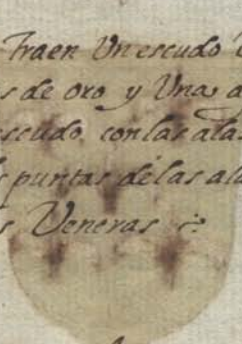 Traen Un escudo
s de oro y Unas a
escudo con las alas
s puntas de las ala
s Veneras